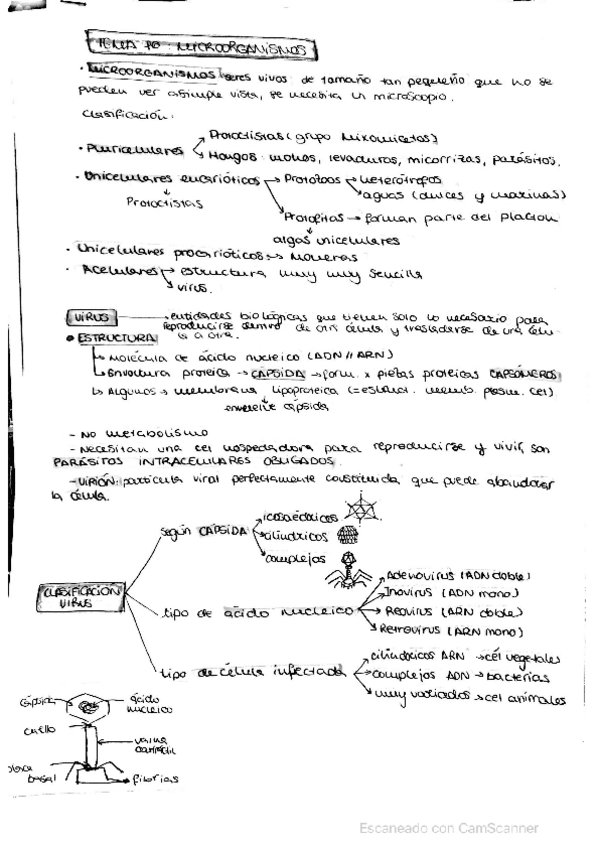 TEMA 10: MICROORGANISMOS
· MICROORGANISMOS: seres vivos de tamaño tan pequeño que no se
pueden ver a simple vista, se necesita un microscopio.
Clasificación:
· Pluricelulares → Protoctistas (grupo Mixomicetos)
→ Hongos: mohos, levaduras, micorrizas, parásitos.
· Unicelulares eucarióticos → Protozoos → heterótrofos
→ aguas (dulces y marinas)
↓
Protoctistas
→ Protofitas → forman parte del plancton
↓
algas unicelulares
· Unicelulares procarióticos → Moneras
· Acelulares → estructura muy muy sencilla
→ virus.
VIRUS → entidades biológicas que tienen solo lo necesario para
reproducirse dentro de otra célula y trasladarse de una célu
la a otra.
• ESTRUCTURA
↳ Molécula de ácido nucleico (ADN//ARN)
↳ Envoltura proteica → CÁPSIDA → form. x piezas proteicas CAPSÓMEROS
↳ Algunos → membrana lipoproteica (= estruct. memb. plasm. cel)
↓
envuelve cápsida
- No metabolismo
- Necesitan una cel hospedadora para reproducirse y vivir, son
PARÁSITOS INTRACELULARES OBLIGADOS.
- VIRIÓN: partícula viral perfectamente constituida que puede abandonar
la célula.
CLASIFICACIÓN
VIRUS
según CÁPSIDA → icosaédricos
→ cilíndricos
→ complejos
tipo de ácido nucleico → Adenovirus (ADN doble)
→ Inovirus (ADN mono)
→ Reovirus (ARN doble)
→ Retrovirus (ARN mono)
tipo de célula infectada → cilíndricos ARN → cél vegetales
→ complejos ADN → bacterias
→ muy variados → cel animales
cápside
ácido
nucleico
cuello
vaina
contráctil
placa
basal
fibrias
Escaneado con CamScanner